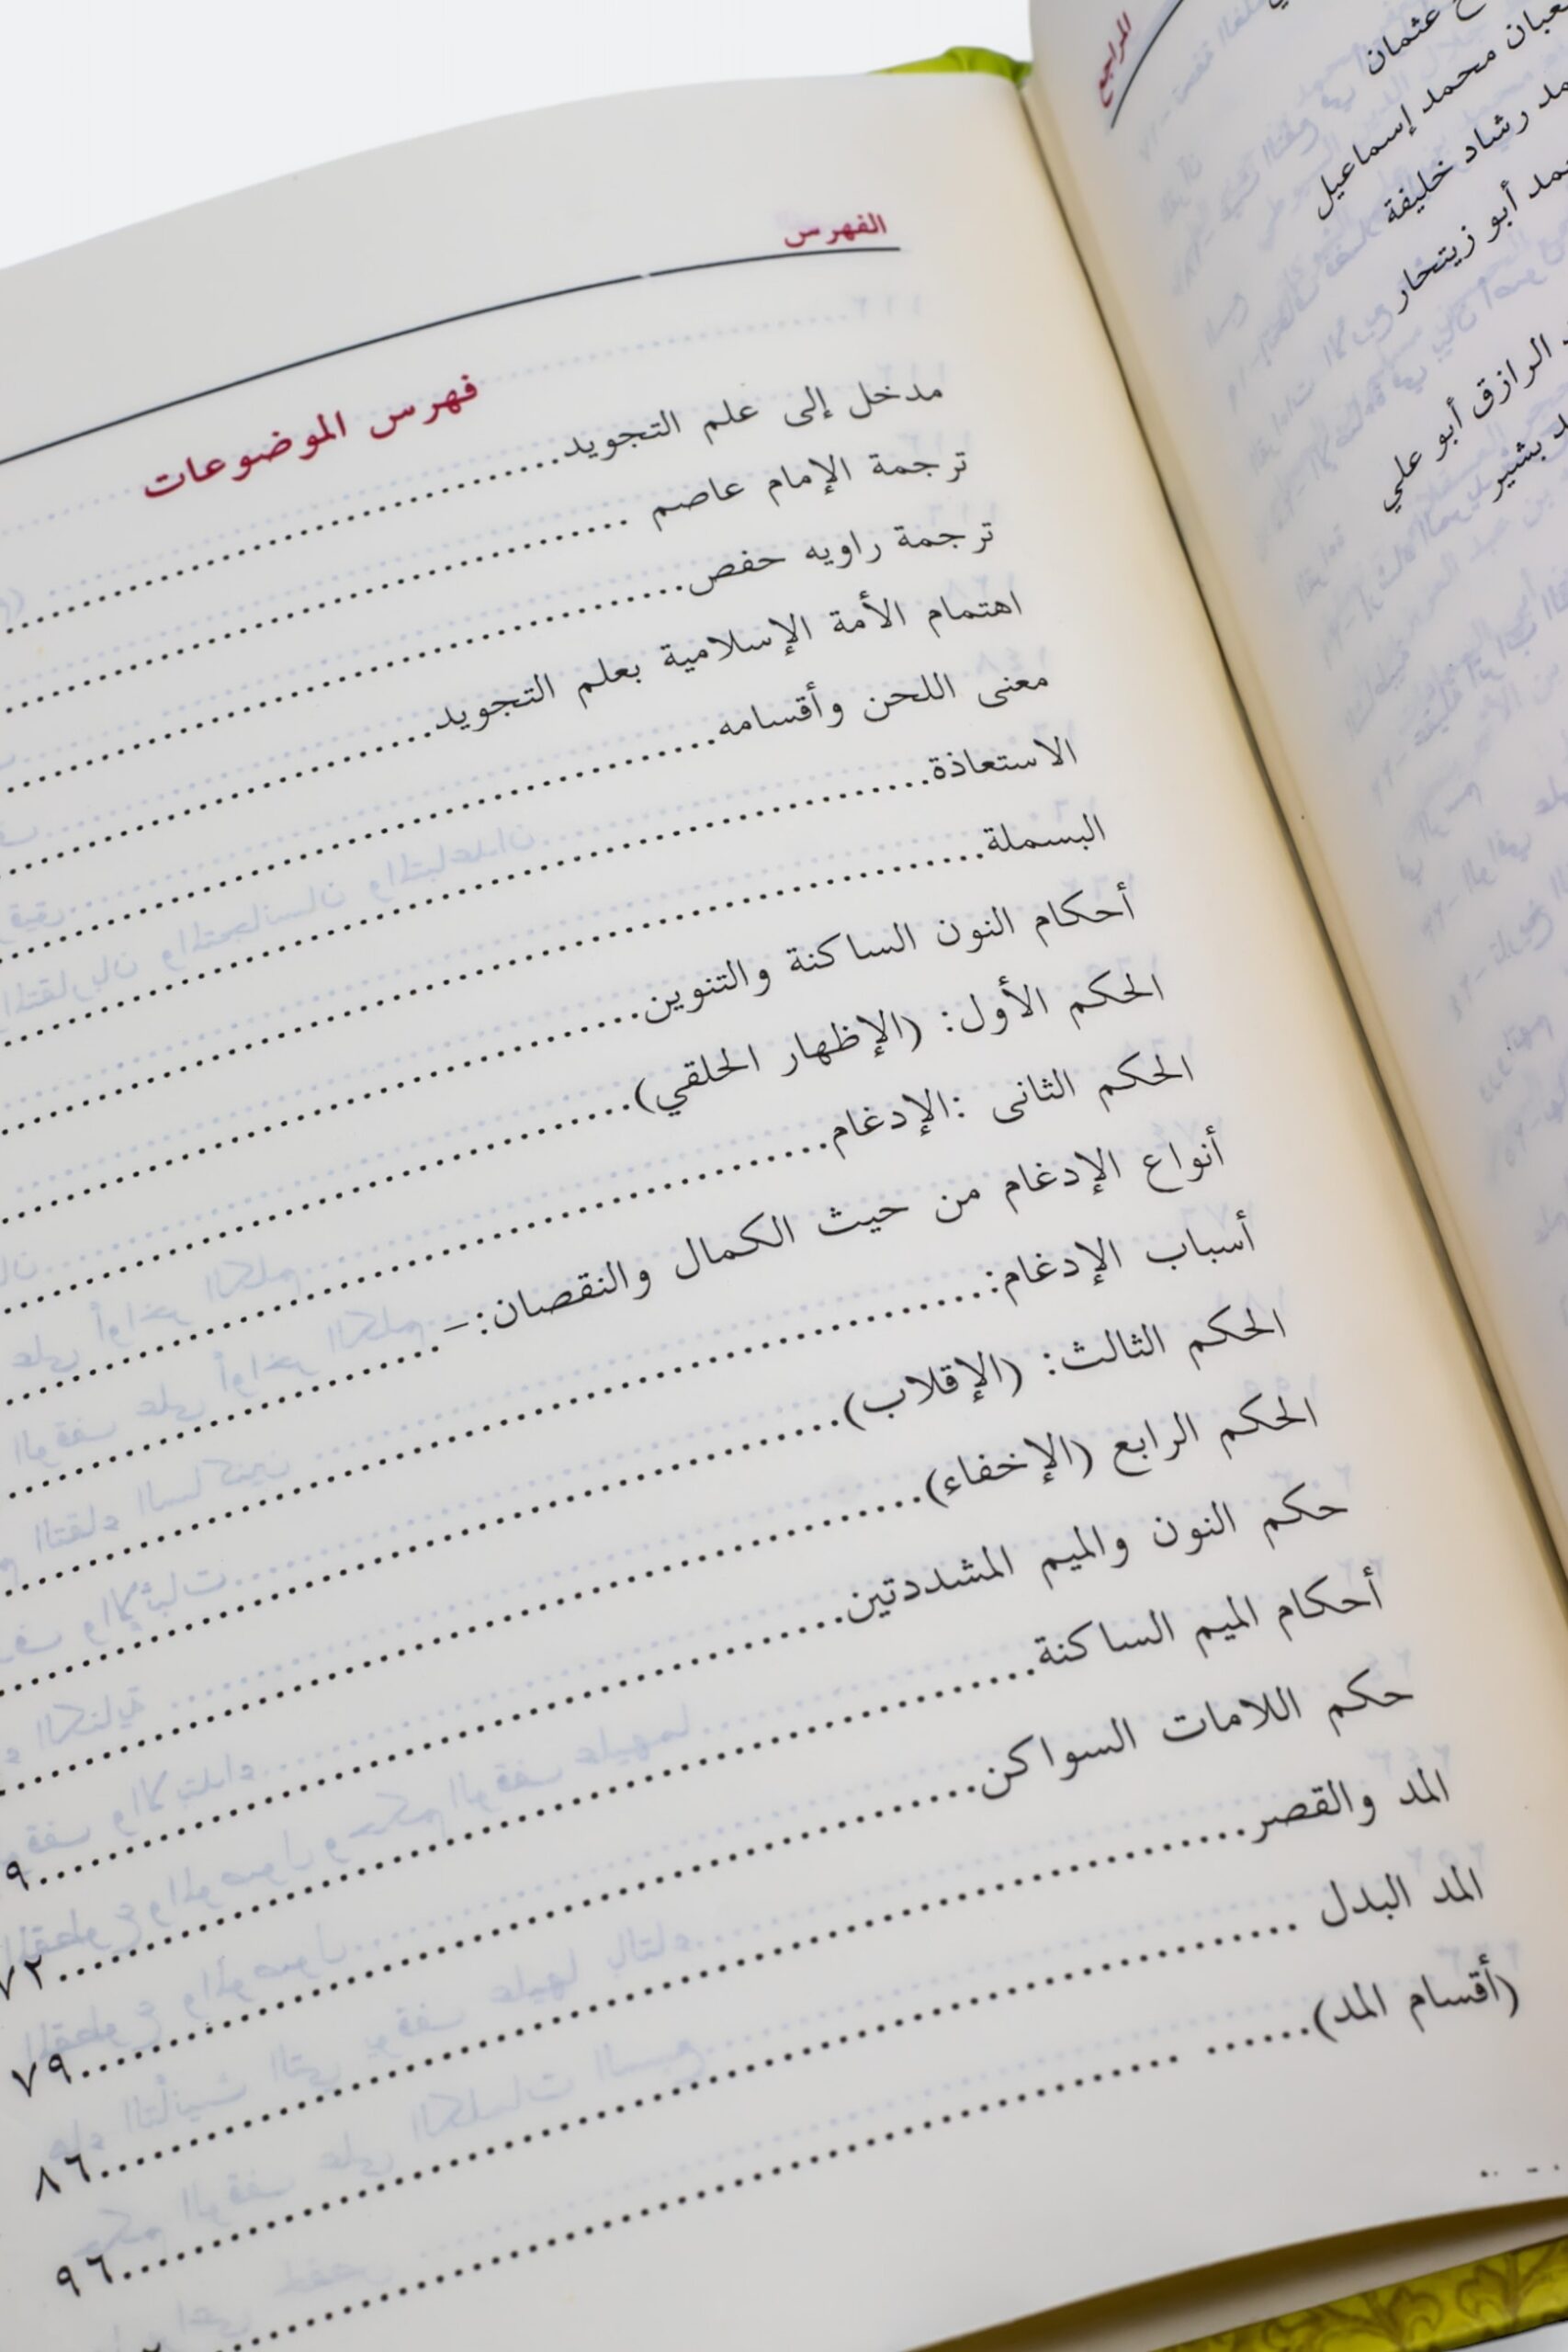 المراجع
عثمان
محمد إسماعيل
رشاد خليفة
أبو زيتحار
الرازق أبو علي
بشير
الفهرس
فهرس الموضوعات
مدخل إلى علم التجويد
ترجمة الإمام عاصم
ترجمة راويه حفص
اهتمام الأمة الإسلامية بعلم التجويد
معنى اللحن وأقسامه
الاستعاذة
البسملة
أحكام النون الساكنة والتنوين
الحكم الأول: (الإظهار الحلقي)
الحكم الثانى :الإدغام
أنواع الإدغام من حيث الكمال والنقصان:-
أسباب الإدغام:
الحكم الثالث: (الإقلاب)
الحكم الرابع (الإخفاء)
حكم النون والميم المشددتين
أحكام الميم الساكنة ٧٢
حكم اللامات السواكن ٧٩
المد والقصر ٨٦
المد البدل ٩٦
(أقسام المد)